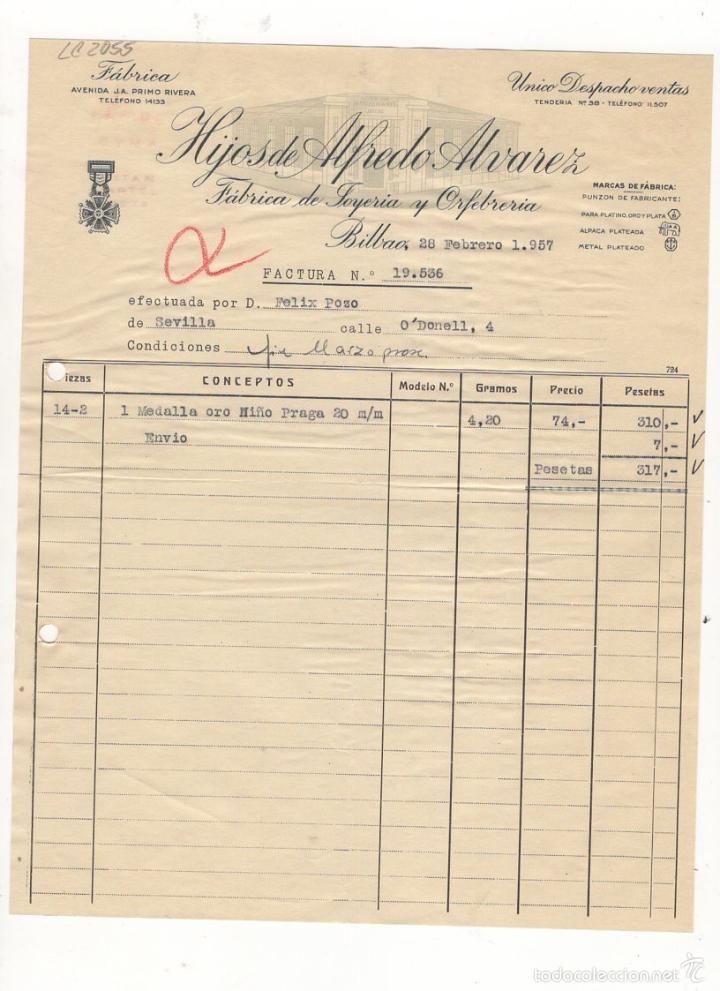 LC 2055
Fábrica
AVENIDA J.A. PRIMO RIVERA
TELÉFONO 14133
Unico Despacho ventas
TENDERIA Nº 38 - TELÉFONO 11.507
Hijos de Alfredo Alvarez
Fábrica de Joyeria y Orfebreria
MARCAS DE FÁBRICA:
PUNZON DE FABRICANTE:
PARA PLATINO, ORO Y PLATA
ALPACA PLATEADA
METAL PLATEADO
Bilbao, 28 Febrero 1.957
FACTURA N.º 19.536
efectuada por D. Felix Pozo
de Sevilla calle O'Donell, 4
Condiciones fin Marzo prox.
724
Piezas CONCEPTOS Modelo N.º Gramos Precio Pesetas
14-2 1 Medalla oro Niño Praga 20 m/m 4,20 74,- 310,-
Envio 7,-
Pesetas 317,-
todocoleccion.net